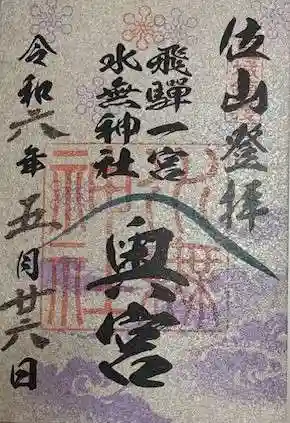 位山登拝
飛騨一宮
水無神社
奥宮
令和六年五月廿六日